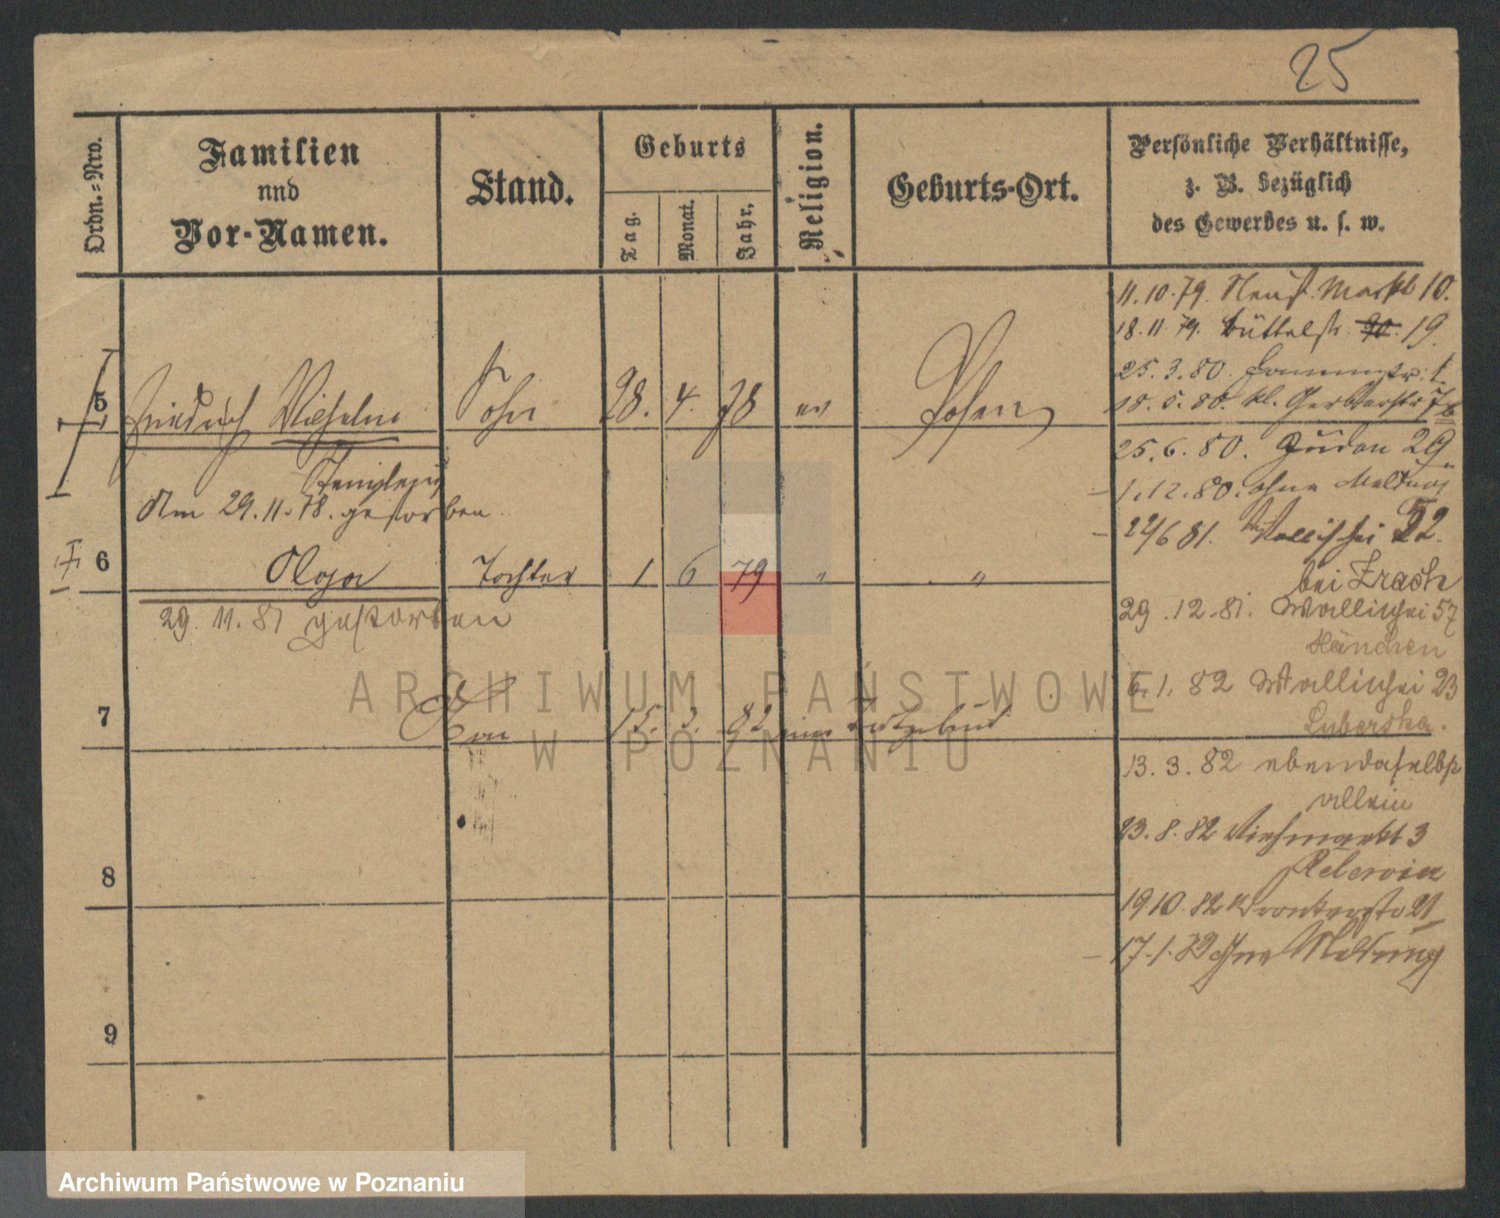 25
Ordn.=Nro.
Familien
und
Vor-Namen.
Stand.
Geburts
Tag.
Monat.
Jahr.
Religion.
Geburts-Ort.
Persönliche Verhältnisse,
z. B. bezüglich
des Gewerbes u. s. w.
11.10.79. Neust. Markt 10.
18.11.79. Büttelstr. 20. 19.
25.3.80.
5 Friedrich Wilhelm Sohn 28. 4. 78 ev Posen
18.5.80. kl. Gerberstr 7b
25.6.80. Juden 29
1.12.80. ohne Meldung
Am 29.11.78. gestorben
22/6 81. Wallischei 52.
6 Olga Tochter 1 6 79 " "
bei
29.11.81 gestorben
29.12.81. Wallischei 57
6.1.82 Wallischei 23
7 15. 3. 82
13.3.82 ebendaselbst
allein
23.8.82 Viehmarkt 3
8
19.10.82 Wronkerstr 21
17.1. ohne Meldung
9
ARCHIWUM PAŃSTWOWE
W POZNANIU
Archiwum Państwowe w Poznaniu